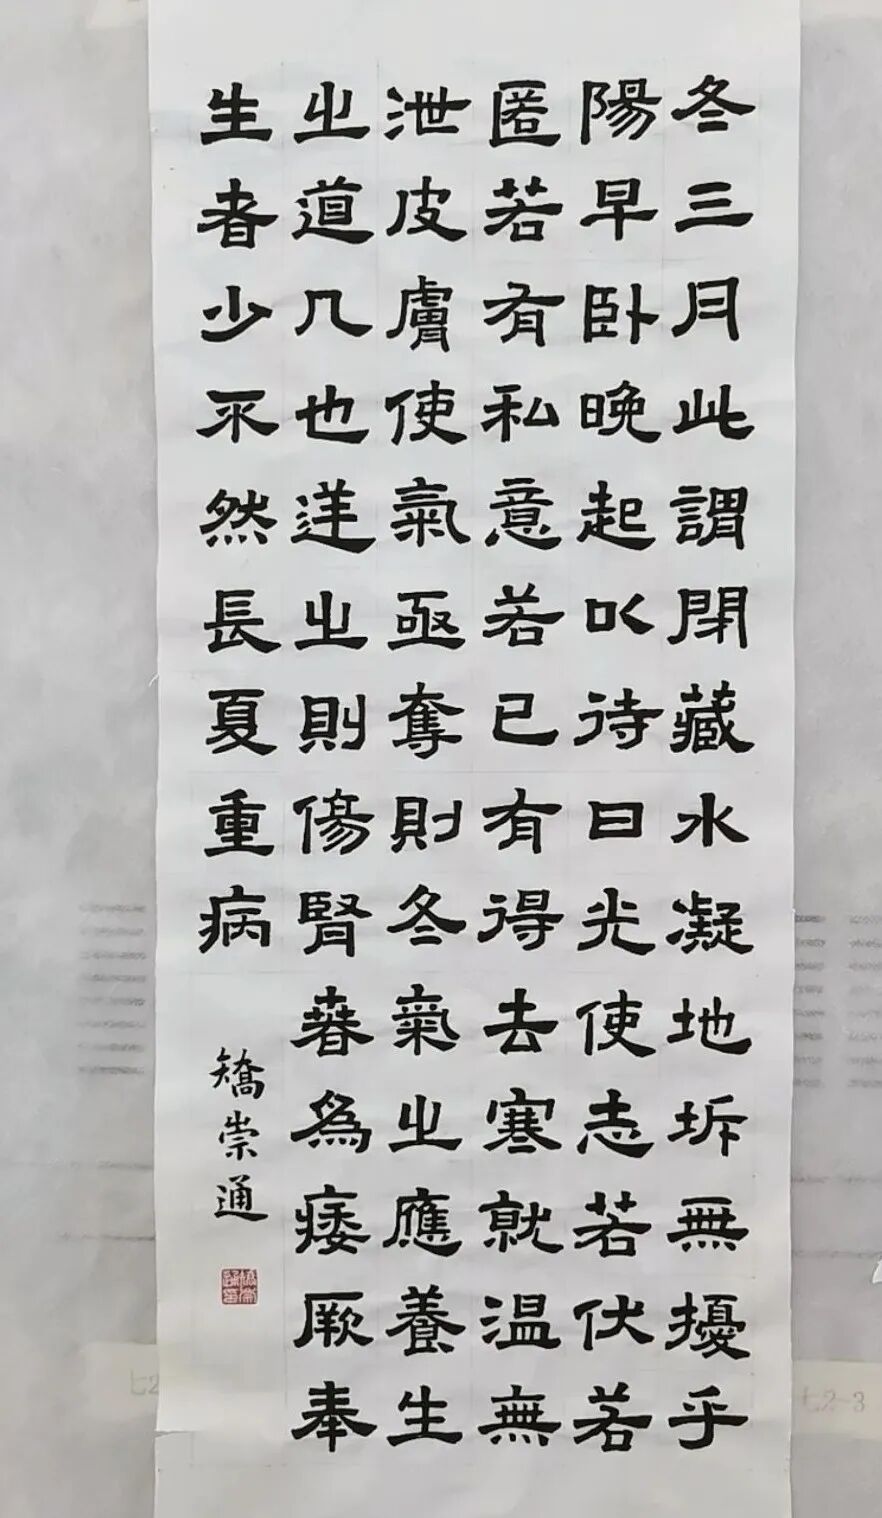 冬三月此謂閉藏水凝地坼無擾乎
陽早卧晚起以待日光使志若伏若
匿若有私意若已有得去寒就温無
泄皮膚使氣亟奪則冬氣之應養生
之道几也逆之則傷腎春為痿厥奉
生者少不然長夏重病
矯崇通
七2
七2-3